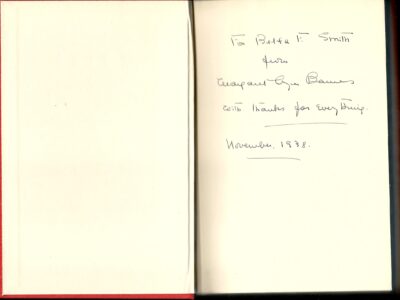 To Bella F. Smith
from
Margaret Ayer Barnes
with thanks for Everything.
November, 1938.